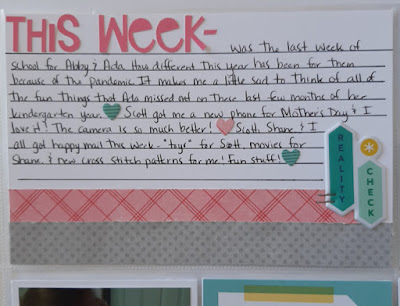 THIS WEEK- was the last week of
school for Abby & Ada. How different this year has been for them
because of the pandemic. It makes me a little sad to think of all of
the fun things that Ada missed out on these last few months of her
kindergarten year. Scott got me a new phone for Mother's Day & I
love it! The camera is so much better! Scott, Shane, & I
all got happy mail this week - "toys" for Scott, movies for
Shane, & new cross stitch patterns for me! Fun stuff!
REALITY
CHECK